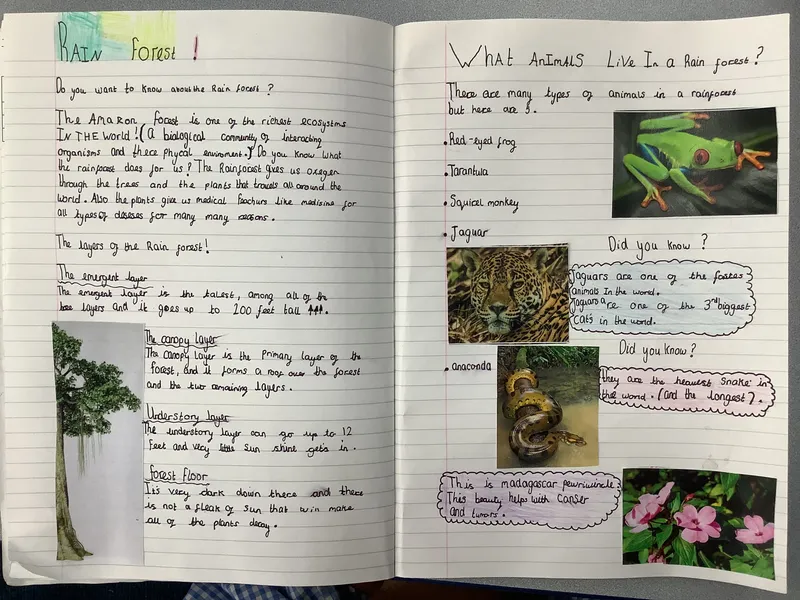 RAIN forest !
Do you want to know about the Rain forest ?
The Amazon forest is one of the richest ecosystems
IN THE World ! (a biological community of interacting
organisms and there phycal enviroment.) Do you know what
the rainforest does for us ? The Rainforest gives us oxegen
through the trees and the plants that travels all around the
world. Also the plants give us medical feachurs like medisine for
all types of deseses for many many reasons.
The layers of the Rain forest !
The emergent layer
The emergent layer is the talest, among all of the
tree layers and it goes up to 200 feet tall
The canopy layer
The canopy layer is the primary layer of the
forest, and it forms a roof over the forest
and the two remaining layers.
Understory layer
The understory layer can go up to 12
feet and very little sun shine gets in.
forest floor
It's very dark down there and there
is not a fleak of sun that win make
all of the plants decay.
What Animals Live In a Rain forest ?
There are many types of animals in a rainforest
but here are 5.
Red-eyed frog
Tarantula
Squirel monkey
Jaguar
Did you know ?
Jaguars are one of the fastes
animals in the world.
Jaguars are one of the 3rd biggest
cats in the world.
anaconda
Did you know ?
they are the heavest snake in
the world. (and the longest).
This is madagascar pewriwincle
This beauty helps with canser
and tumors.